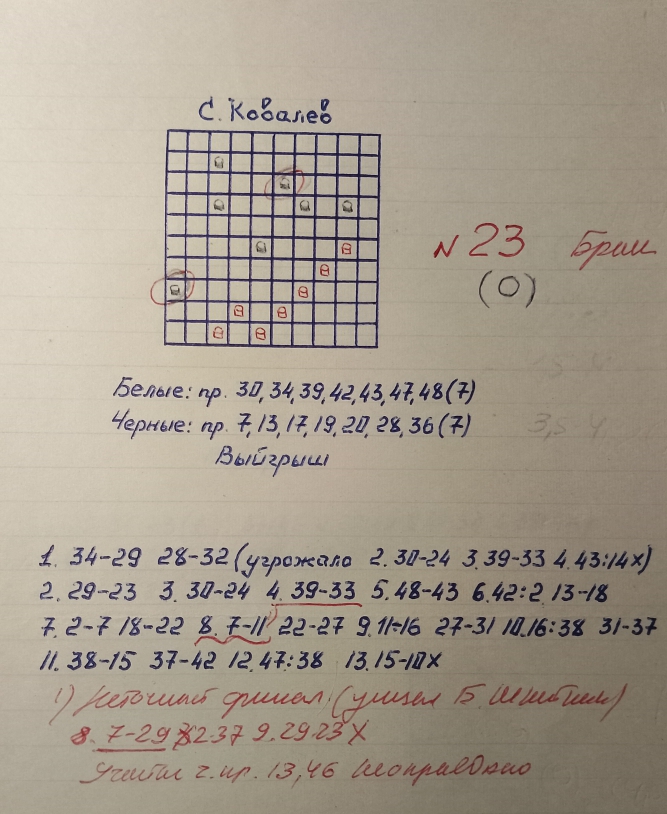 С. Ковалев
N 23 Брак
(0)
Белые: пр. 30, 34, 39, 42, 43, 47, 48 (7)
Черные: пр. 7, 13, 17, 19, 20, 28, 36 (7)
Выйгрыш
1. 34-29 28-32 (угрожало 2. 30-24 3. 39-33 4. 43:14x)
2. 29-23 3. 30-24 4. 39-33 5. 48-43 6. 42:2 13-18
7. 2-7 18-22 8. 7-11 1) 22-27 9. 11-16 27-31 10. 16:38 31-37
11. 38-15 37-42 12. 47:38 13. 15-10x
1) Неточный финал: (указал Б.
8. 7-29 3237 9. 2923 X
ч. пр. 13, 46 неоправдано